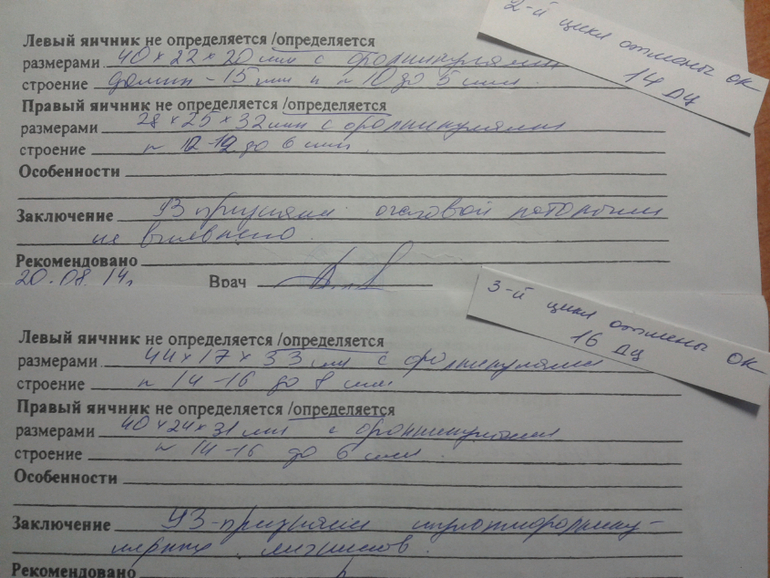 2-й цикл отмены ОК
14 ДЦ
Левый яичник не определяется /определяется
размерами 40×22×20 мм с фолликулами
строение домин - 15 мм и n 10 до 5 мм.
Правый яичник не определяется /определяется
размерами 28×25×32 мм с фолликулами
строение n 12-12 до 6 мм.
Особенности
Заключение УЗ признаки очаговой патологии
не выявлено.
Рекомендовано
20.08.14г. Врач
3-й цикл отмены ОК
16 ДЦ
Левый яичник не определяется /определяется
размерами 44×17×33 мм с фолликулами
строение n 14-16 до 8 мм
Правый яичник не определяется /определяется
размерами 40×24×31 мм с фолликулами
строение n 14-16 до 6 мм.
Особенности
Заключение УЗ-признаки мультифоллику-
лярных яичников.
Рекомендовано